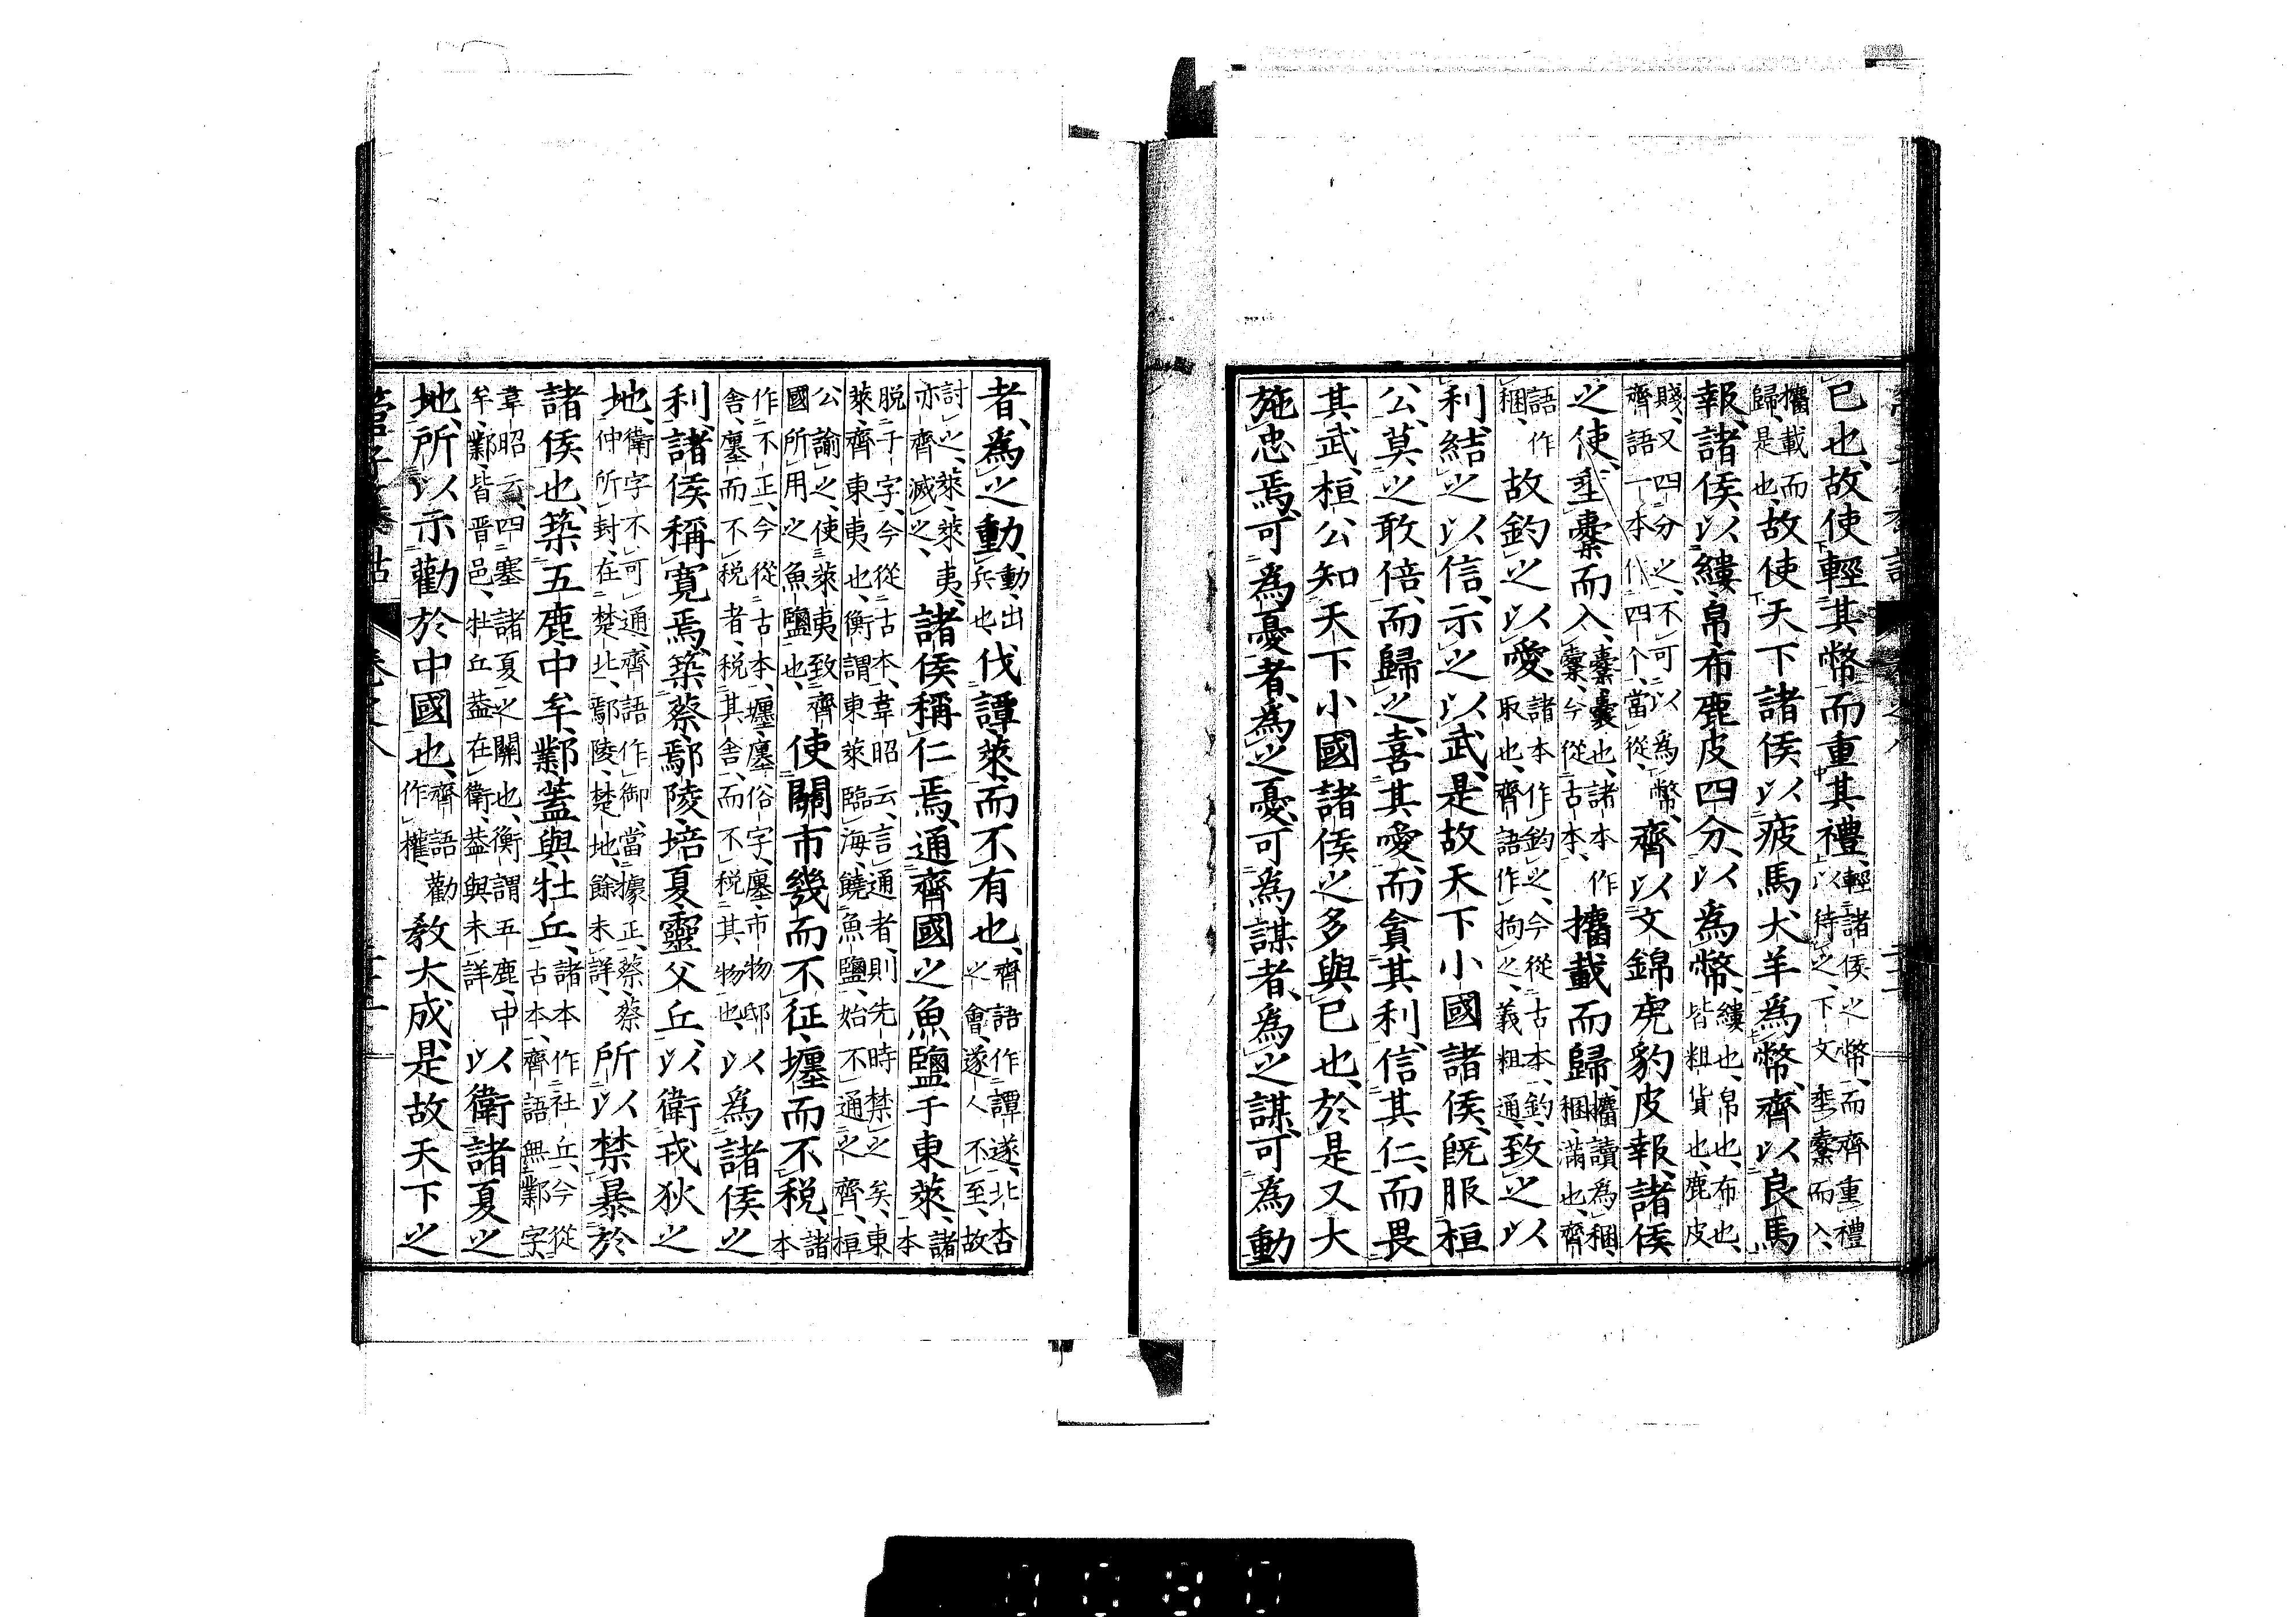 已也、故使輕其幣而重其禮、輕諸侯之幣、而齊重禮以待之、下文垂櫜而入、
攟載而歸是也、故使天下諸侯以疲馬犬羊爲幣、齊以良馬
報、諸侯以縷帛布鹿皮四分、以爲幣、縷也、帛也、布也、皆粗貨也、鹿皮
賤、又四分之、不可以爲幣、齊語一本作四个、當從、齊以文錦虎豹皮報、諸侯
之使、垂櫜而入、櫜囊也、諸本作囊、今從古本、攟載而歸、攟讀爲稛、稛滿也、齊
語作稛、故釣之以愛、諸本作鈞之、今從古本、釣取也、齊語作拘之、義粗通、致之以
利、結之以信、示之以武、是故天下小國諸侯、旣服桓
公、莫之敢倍、而歸之、喜其愛、而貪其利、信其仁、而畏
其武、桓公知天下小國諸侯之多與已也、於是又大
施忠焉、可爲憂者、爲之憂、可爲謀者、爲之謀、可爲動
者、爲之動、動、出兵也、伐譚萊、而不有也、齊語作譚遂、北杏之會、遂人不至、故
討之、萊、萊夷、亦齊滅之、諸侯稱仁焉、通齊國之魚鹽于東萊、諸本
脱于字、今從古本、韋昭云、言通者、則先時禁之矣、東萊、齊東夷也、衡謂東萊臨海、饒魚鹽、始不通之齊、桓
公諭之、使萊夷致齊國所用之魚鹽也、使關市幾而不征、壥而不税、諸本
作不正、今從古本、壥、廛俗字、廛、市物邸舎、廛而不税者、税其舎、而不税其物也、以爲諸侯之
利、諸侯稱寛焉、築蔡鄢陵培夏靈父丘、以衛戎狄之
地、衛字不可通、齊語作御、當據正、蔡、蔡仲所封、在楚北、鄢陵、楚地、餘未詳、所以禁暴於
諸侯也、築五鹿中牟鄴蓋與牡丘、諸本作社丘、今從古本、齊語無鄴字
韋昭云、四塞諸夏之關也、衡謂五鹿、中牟、鄴、皆晋邑、牡丘蓋在衛、蓋與未詳、以衛諸夏之
地、所以示勸於中國也、齊語勸作權、教大成、是故天下之